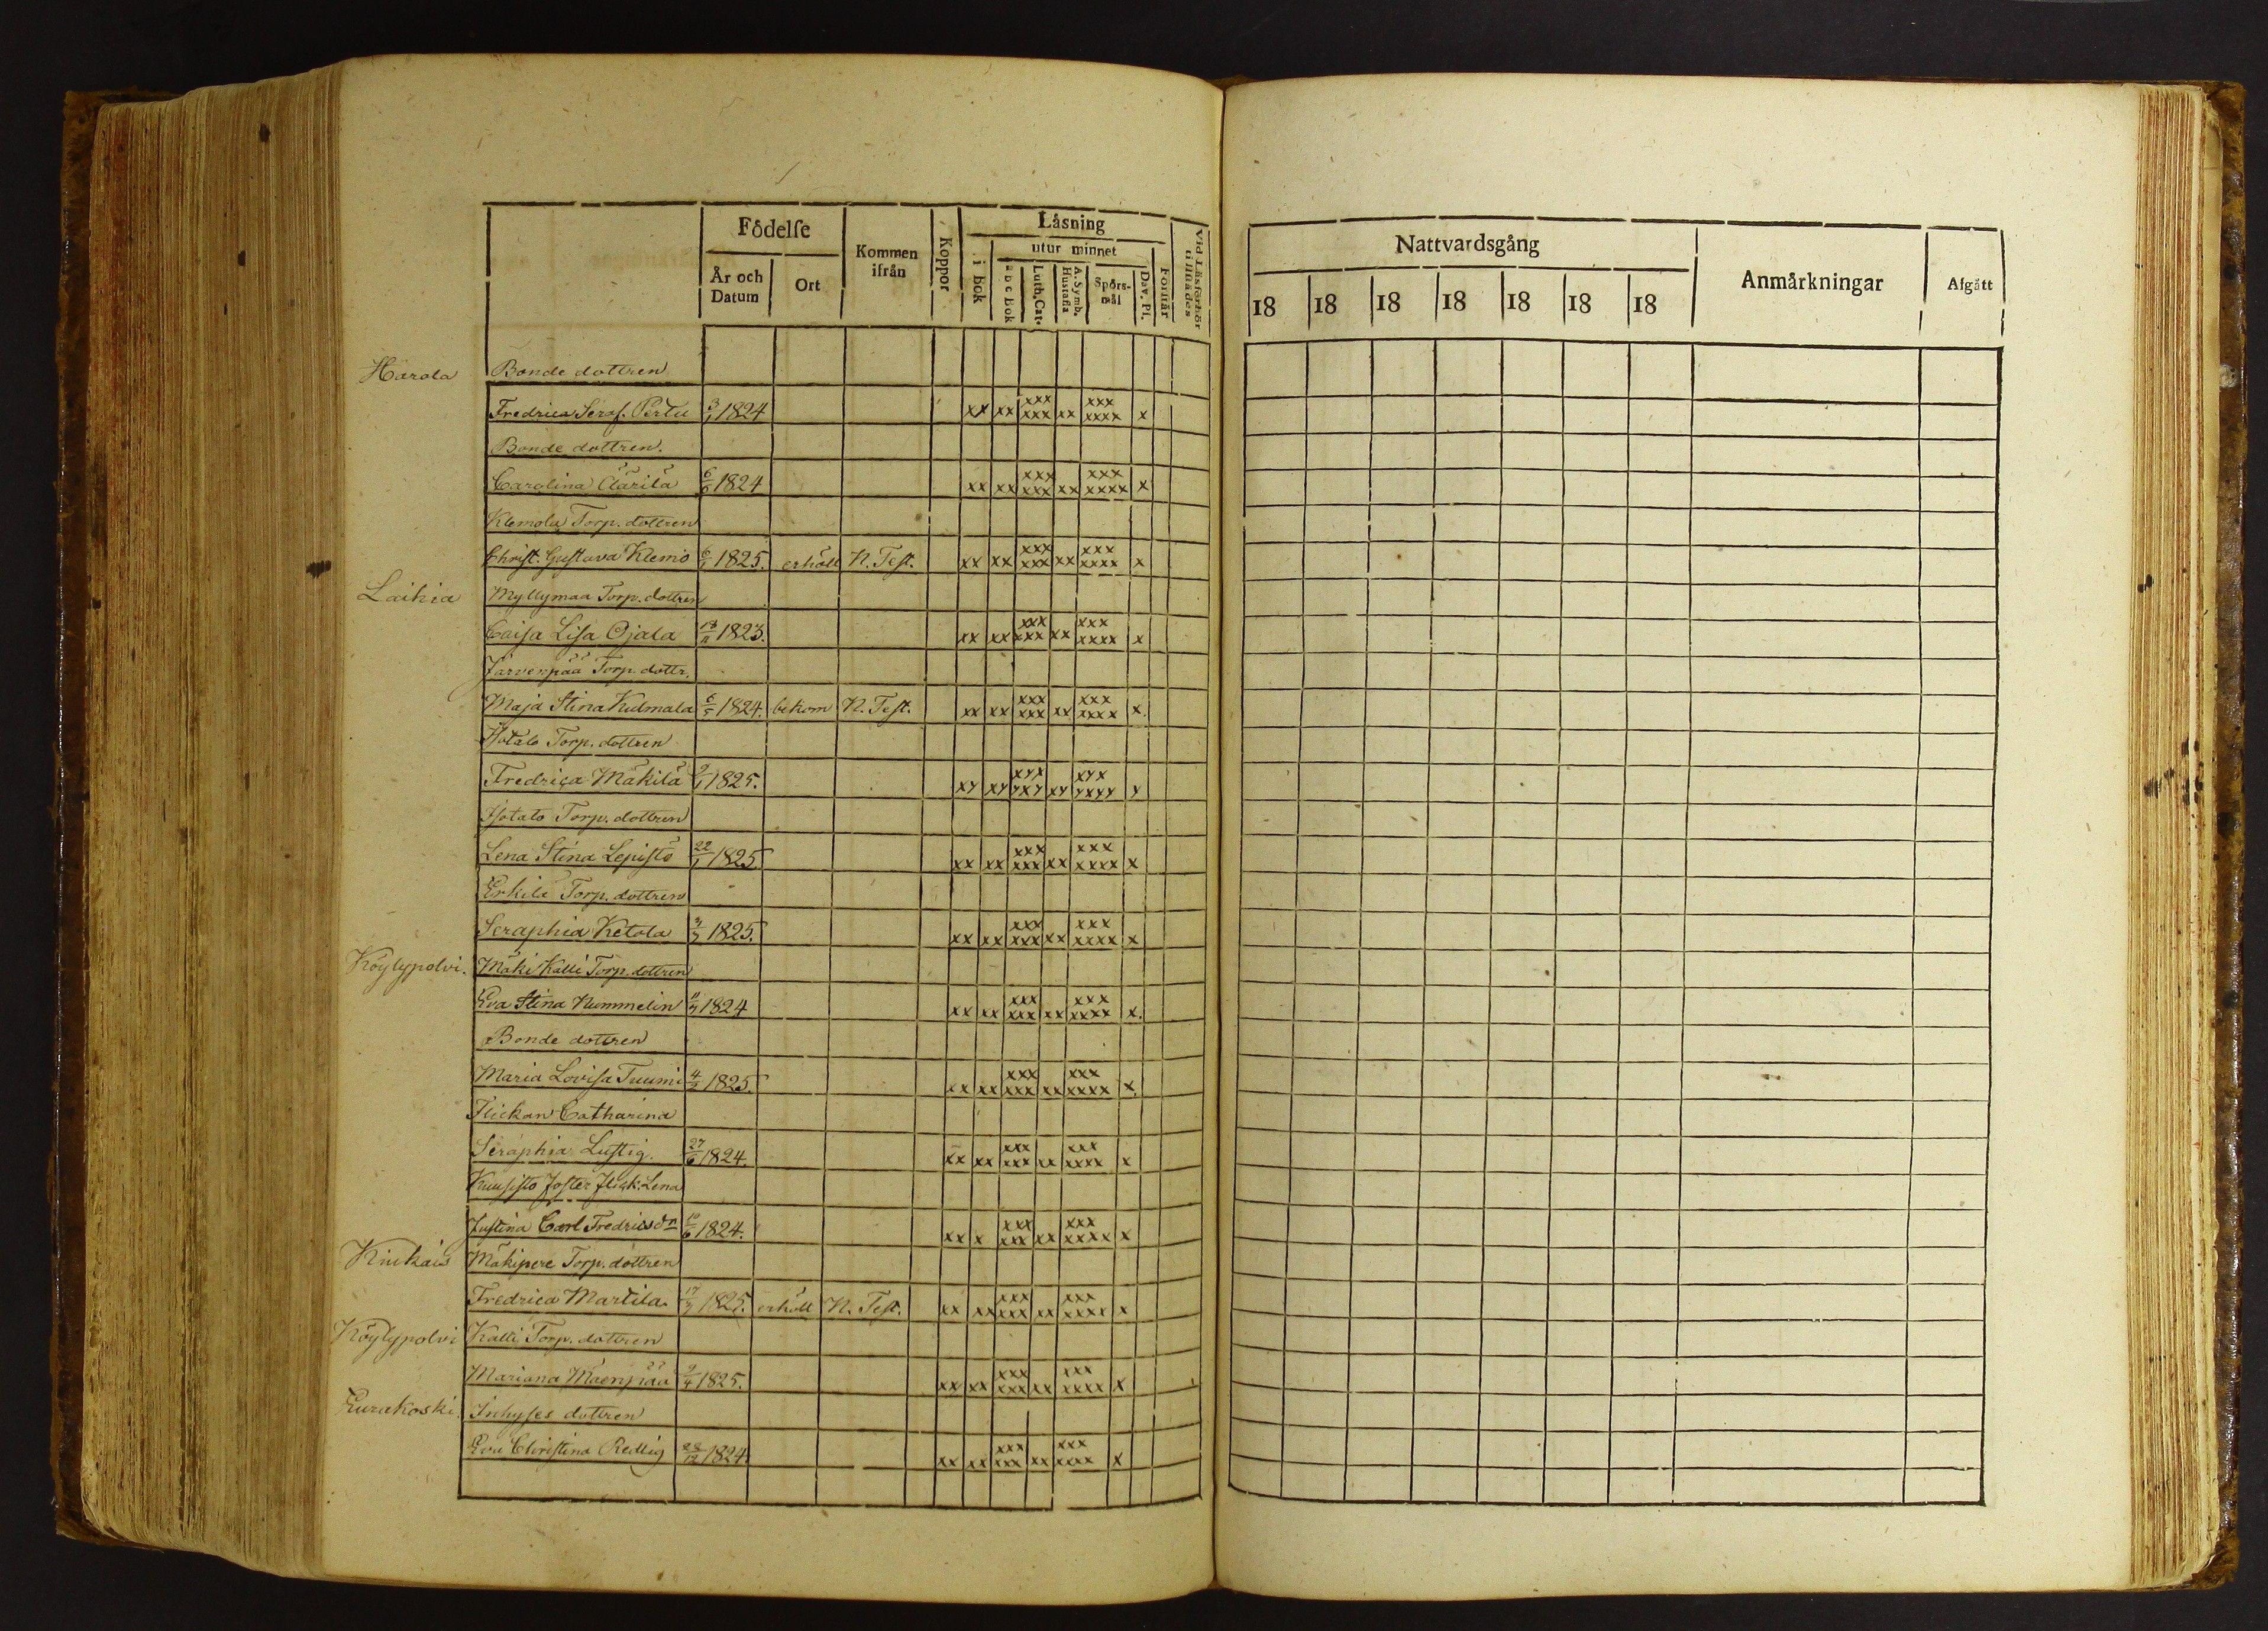 Födelse
Kommen ifrån
Koppor
Läsning
Vid Läsförhör tillstädes
År och Datum
Ort
i Bok
utur minnet
a b c Bok
Luth. Cat.
A. Symb. Hustafla
Spörs-mål
Dav. Ps.
Förstår
Nattvardsgång
Anmärkningar
Afgått
18 18 18 18 18 18 18
Harola Bonde dottren
Fredrica Seraf. Perttu 3/1 1824 xx xx xxx xxx xx xxx xxxx x
Bonde dottren.
Carolina Ctärilä 6/6 1824 xx xx xxx xxx xx xxx xxxx x
Klemola Torp. dottren
Christ. Gustava Klemo 6/1 1825. erhöll N. Test. xx xx xxx xxx xx xxx xxxx x
Laihia Myllymaa Torp. dottren
Caisa Lisa Ojala 18/11 1823. xx xx xxx xxx xx xxx xxxx x
Järvenpää Torp. dottr.
Maja Stina Kulmala 6/5 1824. bekom N. Test. xx xx xxx xxx xx xxx xxxx x.
Isotalo Torp. dottren
Fredrica Mäkilä 9/1 1825. xx xx xxx xxx xx xxx xxxx x
Isotalo Torp. dottren
Lena Stina Lepistö 22/1 1825. xx xx xxx xxx xx xxx xxxx x
Erkilä Torp. dottren
Seraphia Ketola 3/7 1825. xx xx xxx xxx xx xxx xxxx x
Köylypolvi. Mäki Kalli Torp. dottren
Eva Stina Nummelin 11/7 1824 xx xx xxx xxx xx xxx xxxx x.
Bonde dottren
Maria Lovisa Tuumi 4/2 1825. xx xx xxx xxx xx xxx xxxx x
Flickan Catharina
Seraphia Lustig. 27/6 1824. xx xx xxx xxx xx xxx xxxx x
Kuusisto foster flick: Lena
Justina Carl Fredricsdr 10/6 1824. xx x xxx xxx xx xxx xxxx x
Kiukais Mäkipere Torp. dottren
Fredrica Martila. 17/7 1825. erhöll N. Test. xx xx xxx xxx xx xxx xxxx x
Köylypolvi Kalli Torp. dottren
Mariana Mäenpää 9/4 1825. xx xx xxx xxx xx xxx xxxx x
Eurakoski. Inhyses dottren
Eva Christina Redlig 28/12 1824. xx xx xxx xxx xx xxx xxxx x